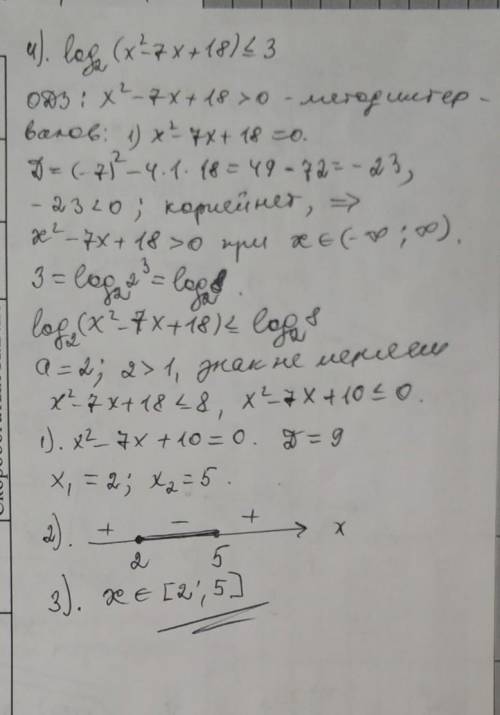 4). log₂(x²-7x+18)≤3
ОДЗ: x²-7x+18>0 - метод интер-
валов: 1) x²-7x+18=0.
Д=(-7)²-4·1·18=49-72=-23,
-23<0; корней нет, ⇒
x²-7x+18>0 при x∈(-∞;∞).
3=log₂2³=log₂8.
log₂(x²-7x+18)≤log₂8
a=2; 2>1, знак не меняем
x²-7x+18≤8, x²-7x+10≤0.
1). x²-7x+10=0. Д=9
x₁=2; x₂=5.
2). + - + x
2 5
3). x∈[2;5]